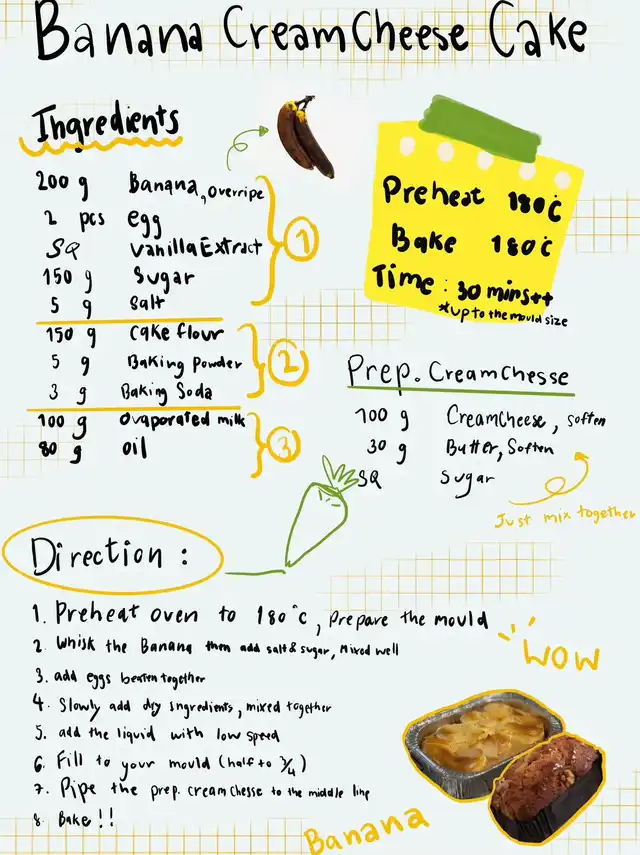 Banana CreamCheese Cake
Ingredients
200 g Banana, overripe
2 pcs egg
SQ vanilla Extract
150 g Sugar
5 g Salt
1
150 g cake flour
5 g Baking Powder
3 g Baking Soda
2
100 g ovaporated milk
80 g oil
3
Preheat 180°c
Bake 180°c
Time : 30 mins++
*up to the mould size
Prep. CreamChesse
100 g CreamCheese, soften
30 g Butter, Soften
SQ Sugar
Just mix together
Direction :
1. Preheat oven to 180°c, Prepare the mould
2. Whisk the Banana then add salt & sugar, Mixed well
3. add eggs beaten together
4. Slowly add dry Ingredients, mixed together
5. add the liquid with low speed
6. Fill to your mould (half to 3/4)
7. Pipe the prep. cream chesse to the middle line
8. Bake !!
WOW
Banana